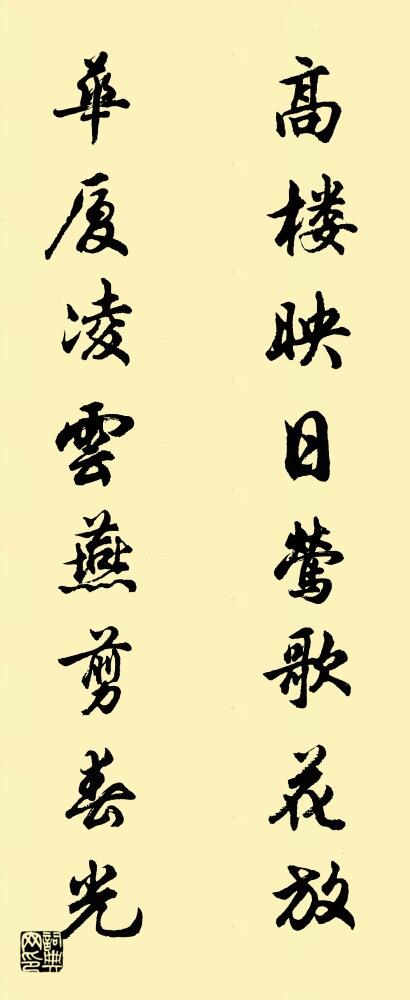 高楼映日莺歌花放
華厦凌雲燕剪春光
詞典网印